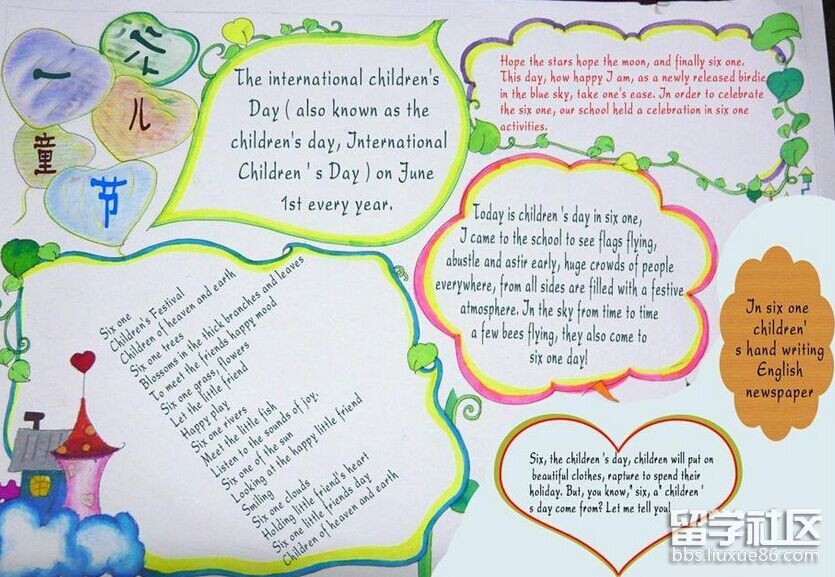 六
一
儿
童
节
The international children's
Day ( also known as the
children's day, International
Children ' s Day ) on June
1st every year.
Hope the stars hope the moon, and finally six one.
This day, how happy I am, as a newly released birdie
in the blue sky, take one's ease. In order to celebrate
the six one, our school held a celebration in six one
activities.
Today is children 's day in six one,
I came to the school to see flags flying,
abustle and astir early, huge crowds of people
everywhere, from all sides are filled with a festive
atmosphere. In the sky from time to time
a few bees flying, they also come to
six one day!
In six one
children'
s hand writing
English
newspaper
Six one
Children's Festival
Children of heaven and earth
Six one trees
Blossoms in the thick branches and leaves
To meet the friends happy mood
Six one grass, flowers
Let the little friend
Happy play
Six one rivers
Meet the little fish
Listen to the sounds of joy.
Six one of the sun
Looking at the happy little friend
Smiling
Six one clouds
Holding little friend's heart
Six one little friends day
Children of heaven and earth
Six, the children 's day, children will put on
beautiful clothes, rapture to spend their
holiday. But, you know," six, a" children '
s day come from? Let me tell you!
留学社区
bbs.liuxue86.com